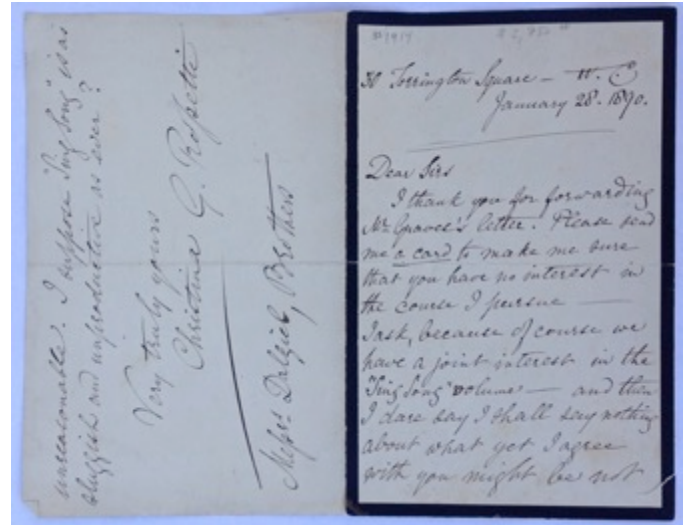 #1914 $2,750
30 Torrington Square — W. C.
January 28. 1890.
Dear Sirs
I thank you for forwarding
Mr. Graves's letter. Please send
me a card to make me sure
that you have no interest in
the course I pursue —
I ask, because of course we
have a joint interest in the
"Sing Song" volume — and then
I dare say I shall say nothing
about what yet I agree
with you might be not
unreasonable. I suppose "Sing Song" is as
sluggish and unproductive as ever?
Very truly yours
Christina G. Rossetti
Messrs. Dalziel, Brothers